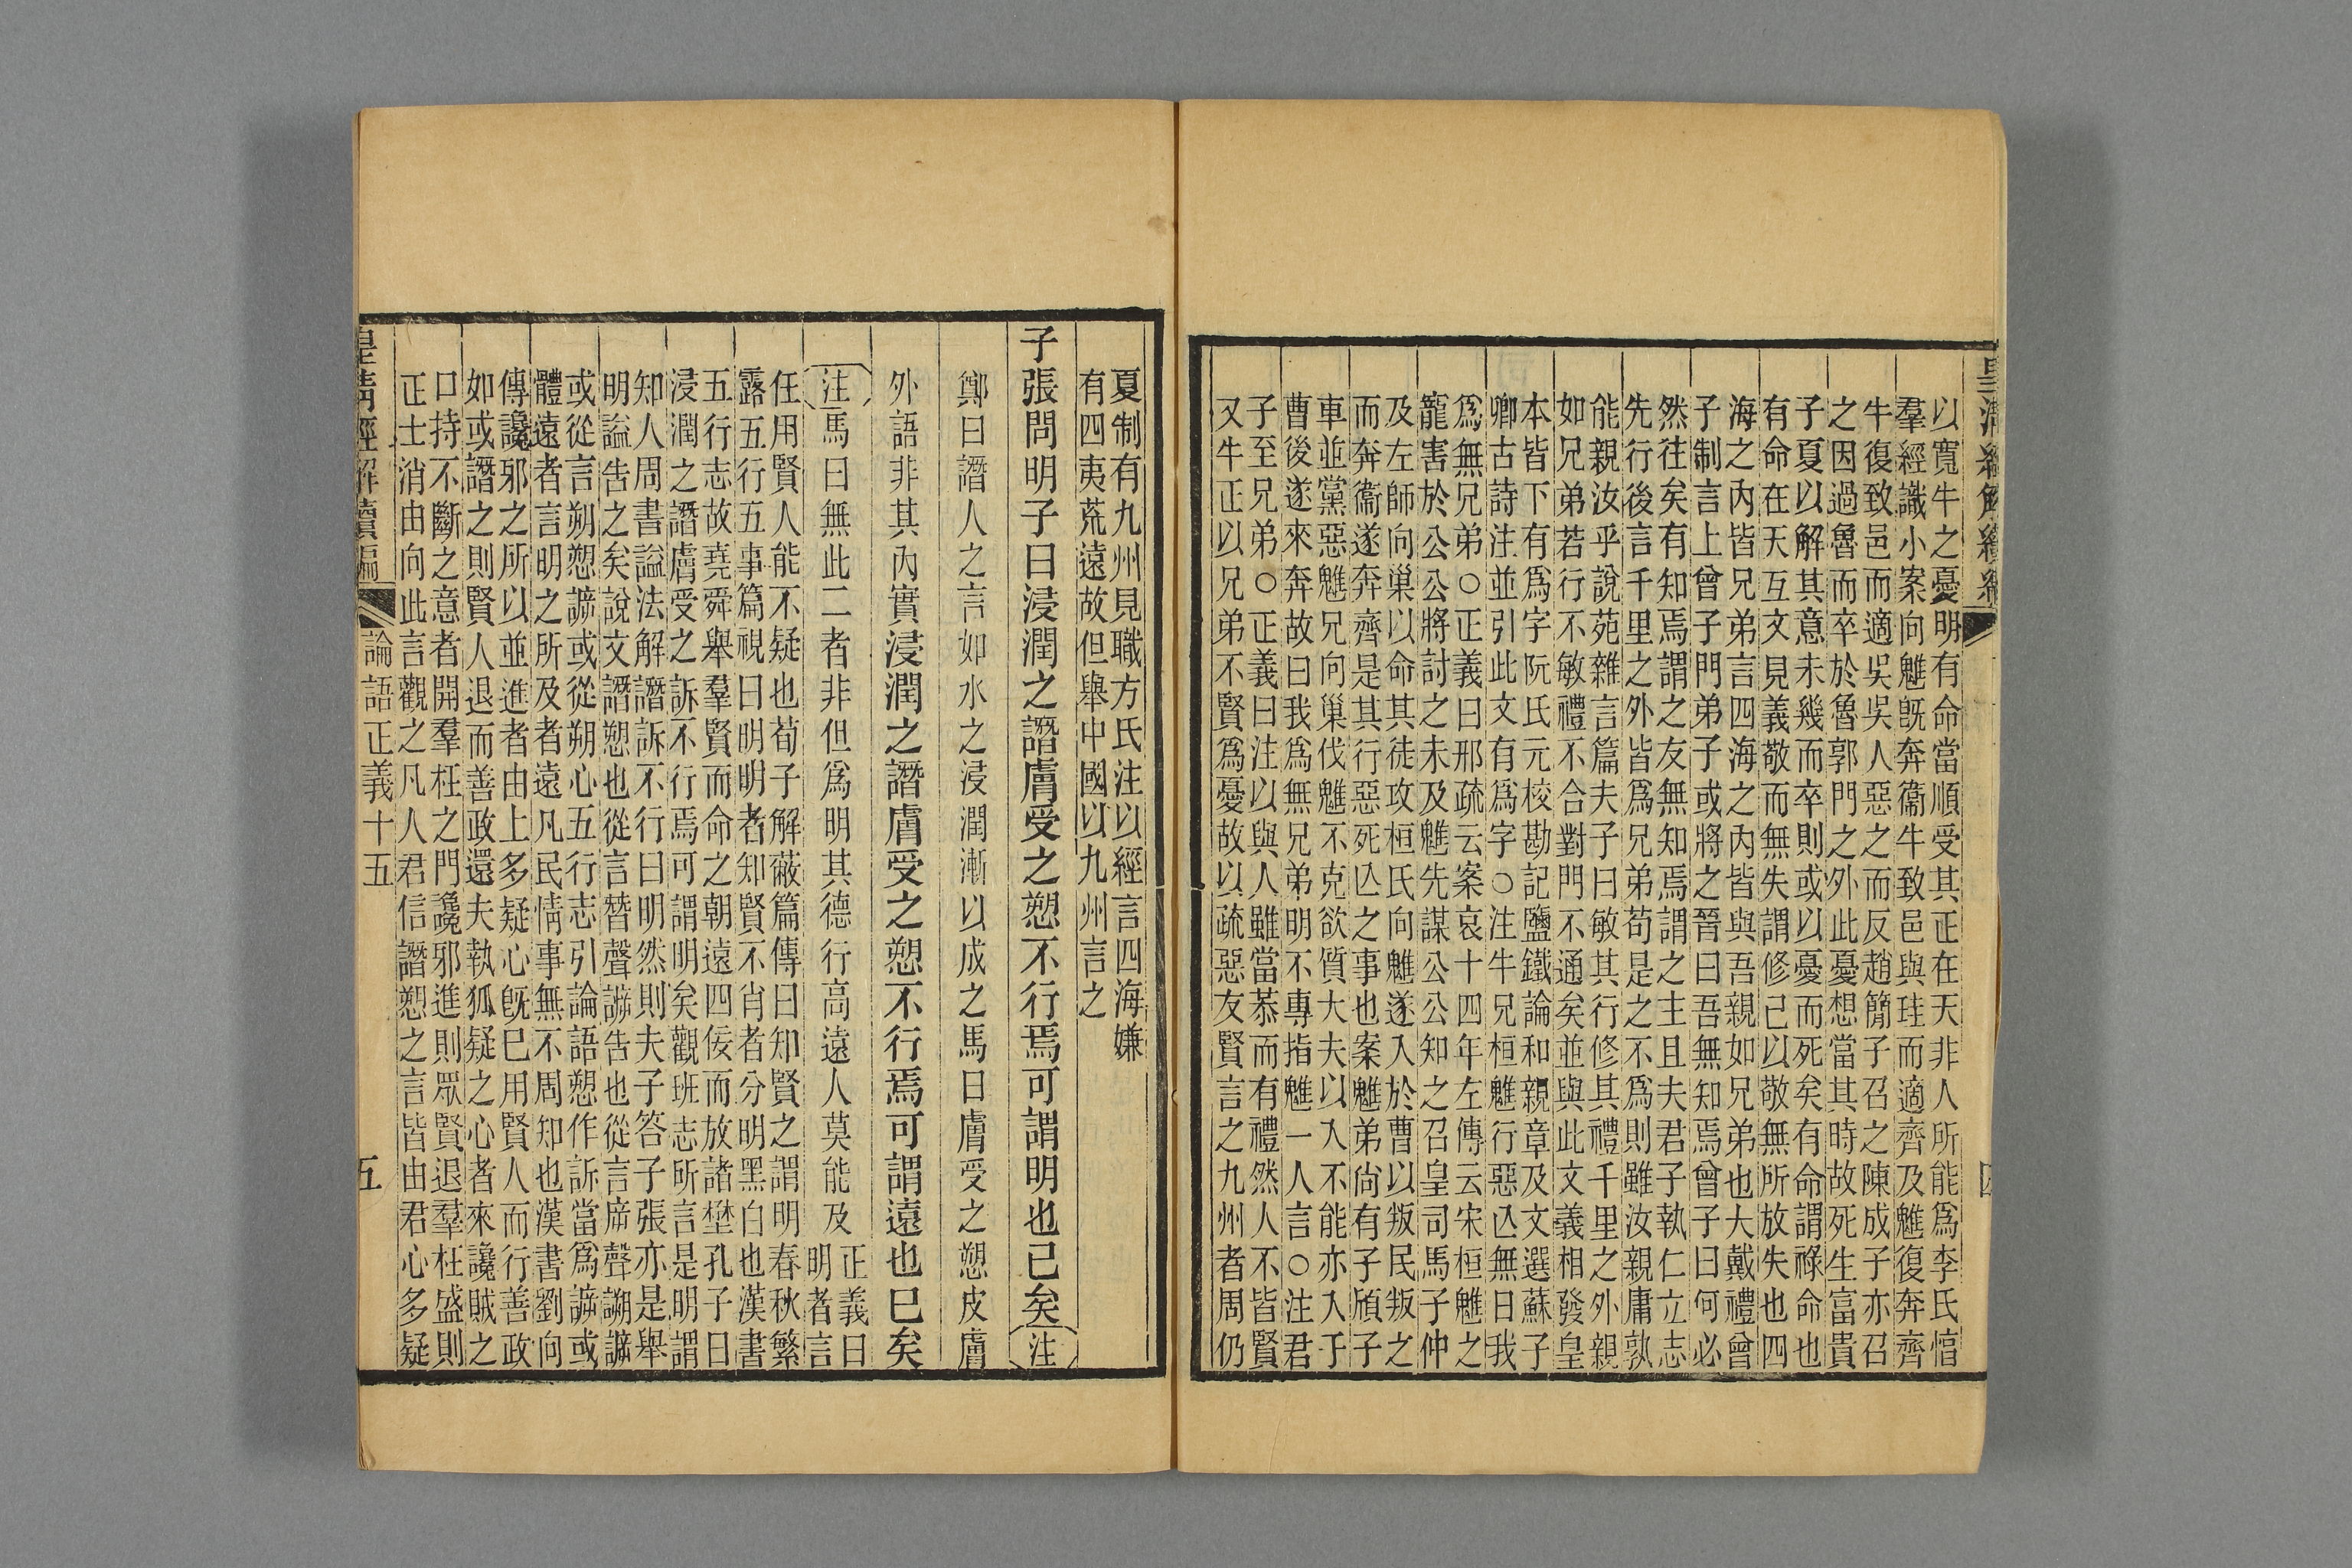 皇清經解續編
四
以寬牛之憂明有命當順受其正在天非人所能爲李氏惇
羣經識小案向魋旣奔衞牛致邑與珪而適齊及魋復奔齊
牛復致邑而適吳吳人惡之而反趙簡子召之陳成子亦召
之因過魯而卒於魯郭門之外此憂想當其時故死生富貴
子夏以解其意未幾而卒則或以憂而死矣有命謂祿命也
有命在天互文見義敬而無失謂修己以敬無所放失也四
海之內皆兄弟言四海之內皆與吾親如兄弟也大戴禮曾
子制言上曾子門弟子或將之晉曰吾無知焉曾子曰何必
然往矣有知焉謂之友無知焉謂之主且夫君子執仁立志
先行後言千里之外皆爲兄弟苟是之不爲則雖汝親庸孰
能親汝乎說苑雜言篇夫子曰敏其行修其禮千里之外親
如兄弟若行不敏禮不合對門不通矣並與此文義相發皇
本皆下有爲字阮氏元校勘記鹽鐵論和親章及文選蘇子
卿古詩注並引此文有爲字○注牛兄桓魋行惡亾無日我
爲無兄弟○正義曰邢疏云案哀十四年左傳云宋桓魋之
寵害於公公將討之未及魋先謀公公知之召皇司馬子仲
及左師向巢以命其徒攻桓氏向魋遂入於曹以叛民叛之
而奔衞遂奔齊是其行惡死亾之事也案魋弟尙有子頎子
車並黨惡魋兄向巢伐魋不克欲質大夫以入不能亦入于
曹後遂來奔故曰我爲無兄弟明不專指魋一人言○注君
子至兄弟○正義曰注以與人雖當恭而有禮然人不皆賢
又牛正以兄弟不賢爲憂故以疏惡友賢言之九州者周仍
夏制有九州見職方氏注以經言四海嫌
有四夷荒遠故但舉中國以九州言之
子張問明子曰浸潤之譖膚受之愬不行焉可謂明也已矣注
鄭曰譖人之言如水之浸潤漸以成之馬曰膚受之愬皮膚
外語非其內實浸潤之譖膚受之愬不行焉可謂遠也已矣
注馬曰無此二者非但爲明其德行高遠人莫能及正義曰
明者言
任用賢人能不疑也荀子解蔽篇傳曰知賢之謂明春秋繁
露五行五事篇視曰明明者知賢不肖者分明黑白也漢書
五行志故堯舜舉羣賢而命之朝遠四佞而放諸壄孔子曰
浸潤之譖膚受之訴不行焉可謂明矣觀班志所言是明謂
知人周書謚法解譖訴不行曰明然則夫子答子張亦是舉
明謚告之矣說文譖愬也從言朁聲謕告也從言㡿聲謕
或從言朔愬謕或從朔心五行志引論語愬作訴當爲謕或
體遠者言明之所及者遠凡民情事無不周知也漢書劉向
傳讒邪之所以並進者由上多疑心旣已用賢人而行善政
如或譖之則賢人退而善政還夫執狐疑之心者來讒賊之
口持不斷之意者開羣枉之門讒邪進則眾賢退羣枉盛則
正士消由向此言觀之凡人君信譖愬之言皆由君心多疑
皇清經解續編
論語正義十五
五